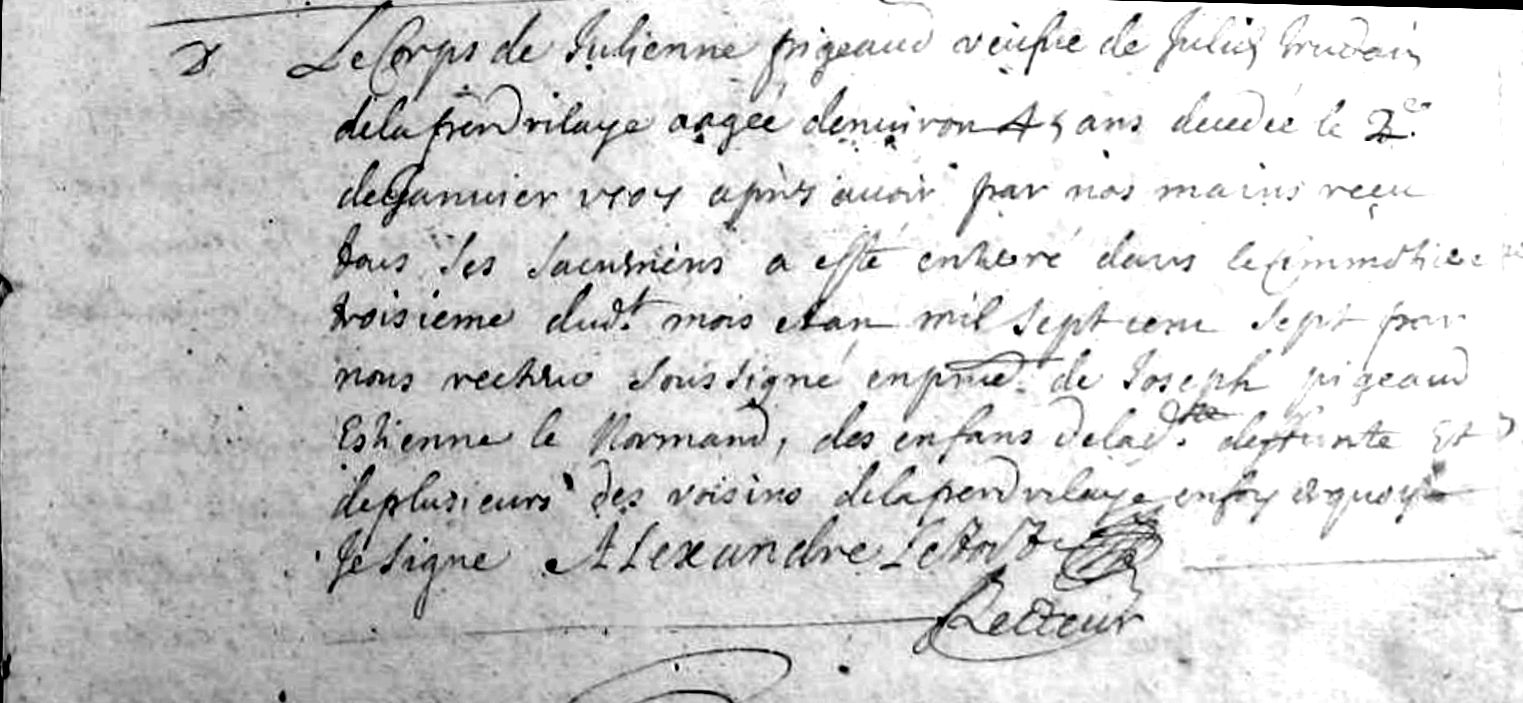 Le Corps de Julienne pigeaud veufve de Julien
de la aagée denuiron 45 ans decedée le 2e
de Januier 1707 après auoir par nos mains reçu
tous ses sacremens a esté enterré dans le Cimmetiere
troisieme dudt mois et an mil sept cent sept par
nous recteur soussigné en pnce de Joseph pigeaud
Estienne le Normand, des enfans de lad. deffunte Et
de plusieurs des voisins de la en foy de quoy
Je signe Alexandre
Recteur